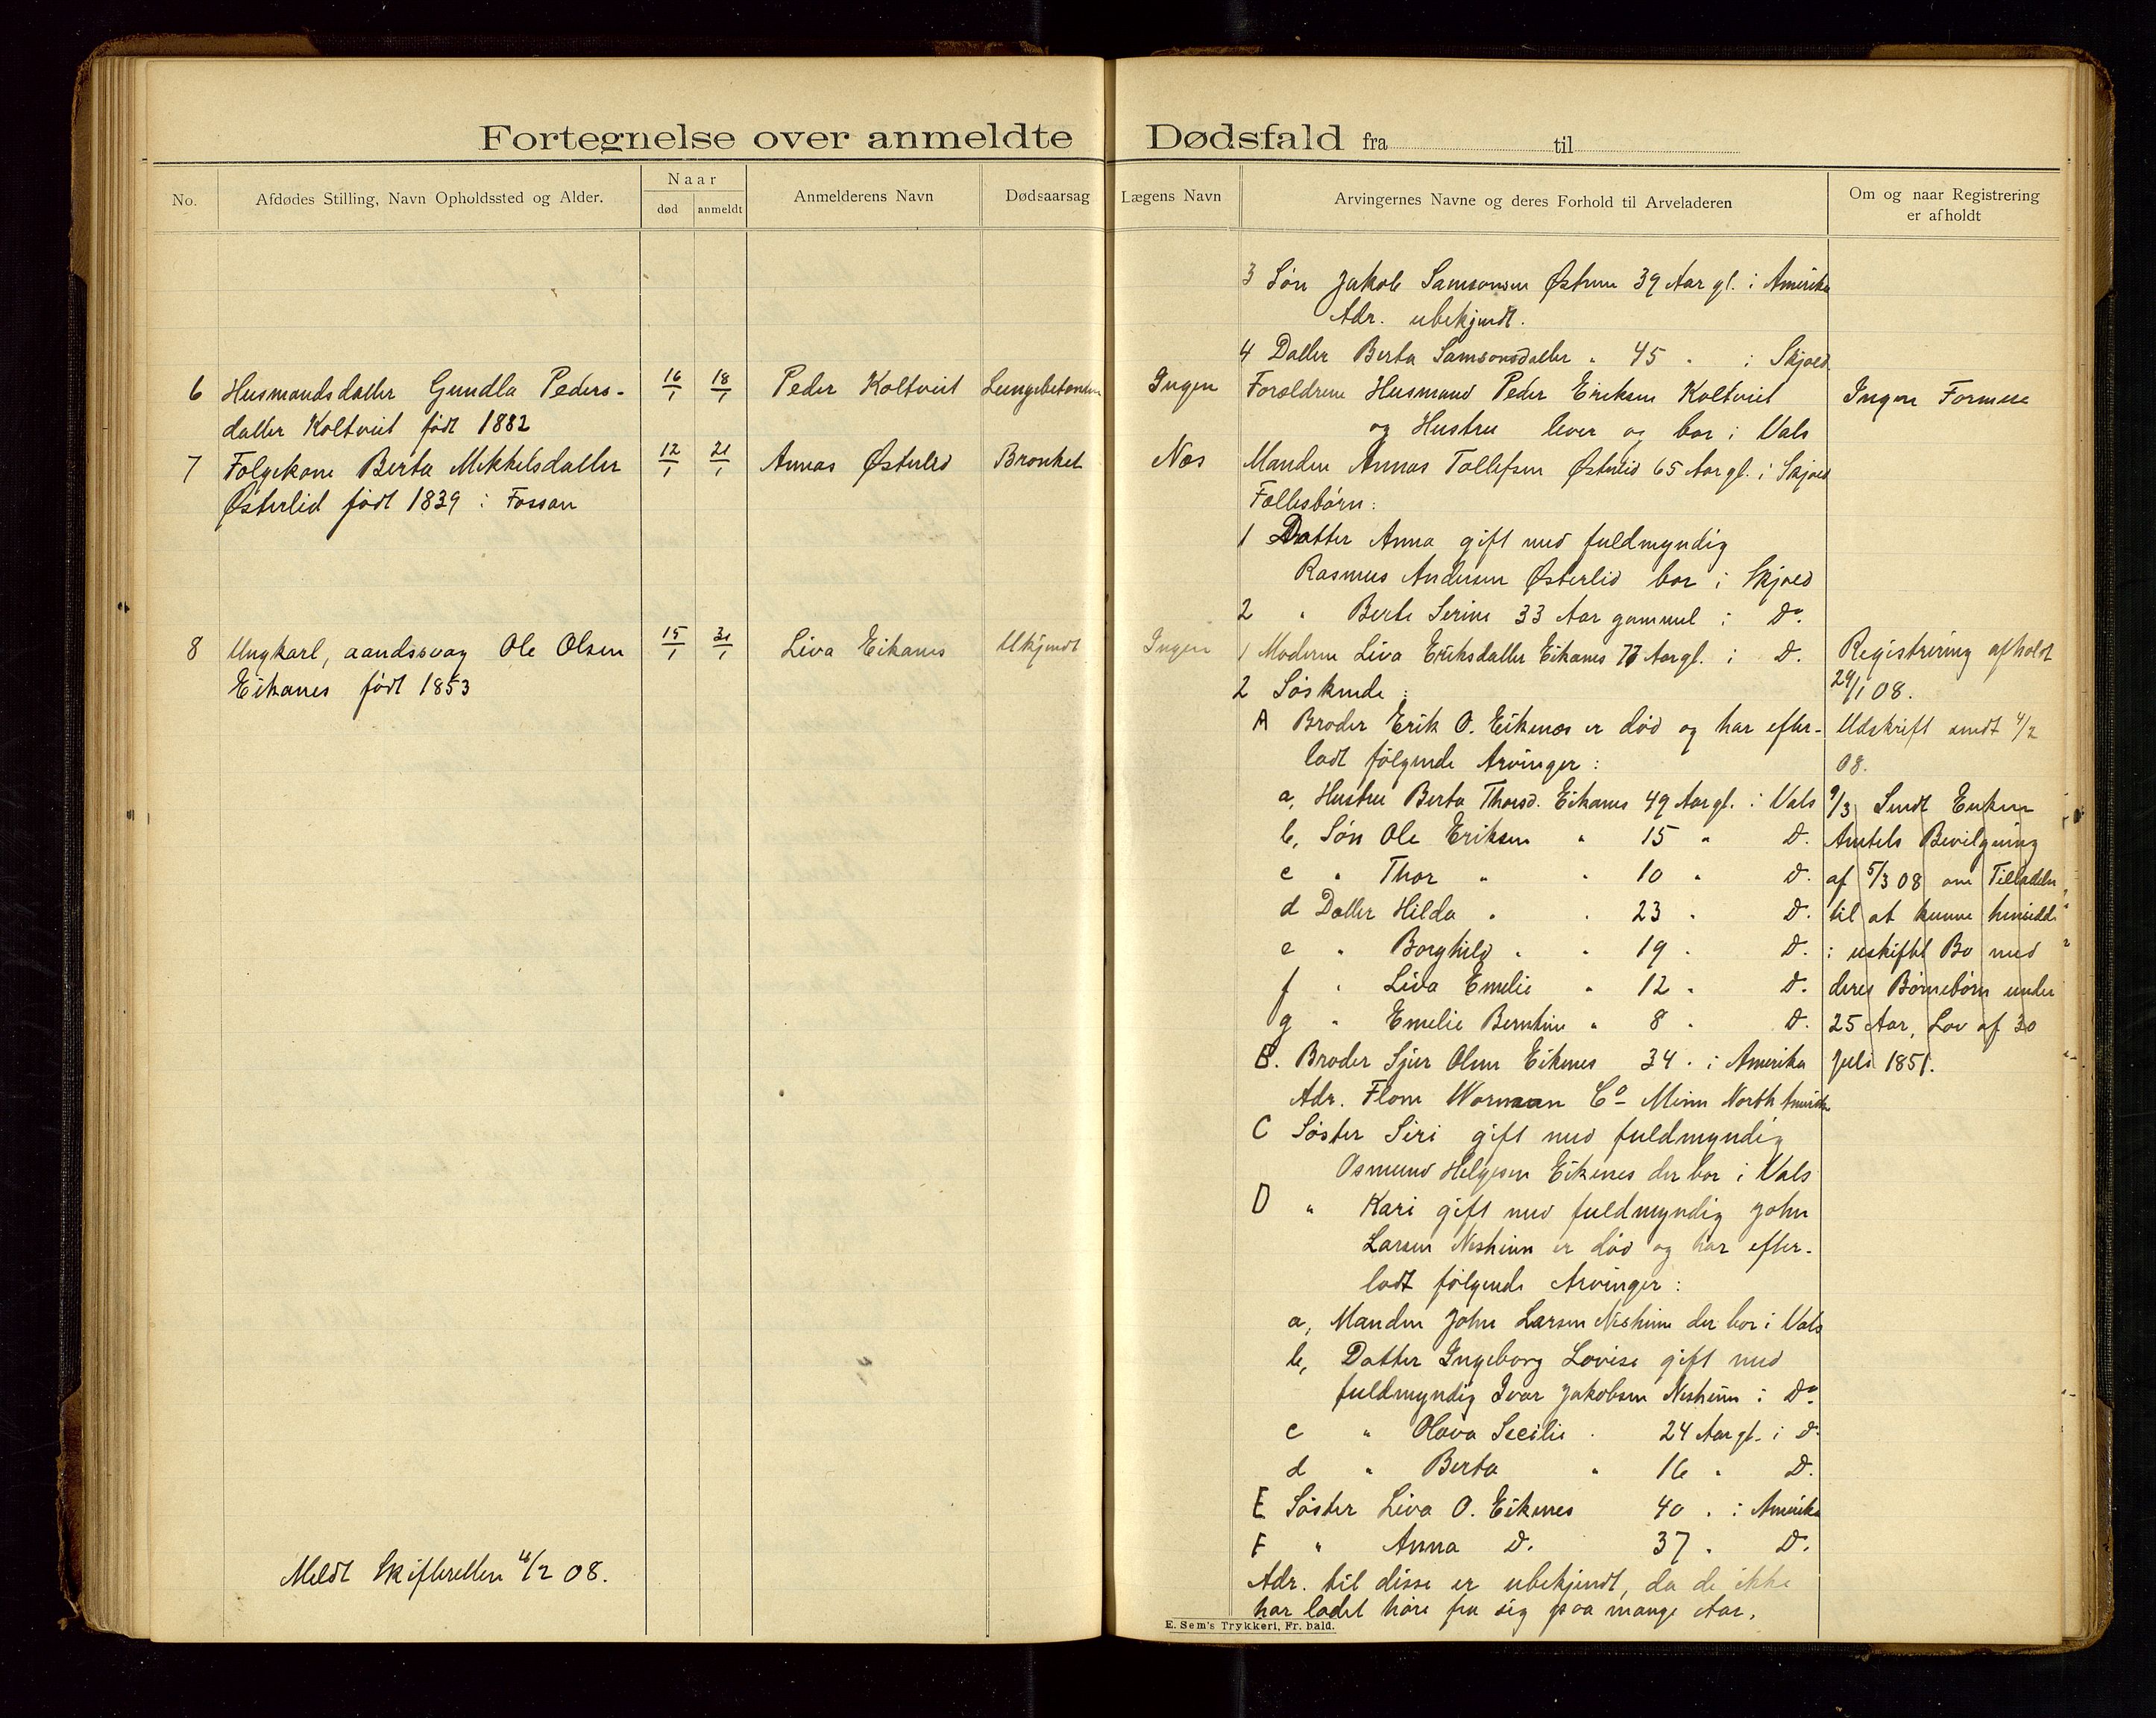 Fortegnelse over anmeldte Dødsfald fra til
No.
Afdødes Stilling, Navn Opholdssted og Alder.
Naar
død
anmeldt
Anmelderens Navn
Dødsaarsag
Lægens Navn
Arvingernes Navne og deres Forhold til Arveladeren
Om og naar Registrering
er afholdt
3 Søn Jakob Samsonsen 39 Aar gl. i Amerika
Adr. ubekjendt.
4 Datter Berta Samsonsdatter " 45 " i Skjold
6 Husmandsdatter Gundla Peders-
datter Koltveit født 1882
16/1 18/1 Peder Koltveit
Ingen
Forældrene Husmand Peder Eriksen Koltveit
og Hustru lever og bor i Vats
Ingen Formue
7 Følgekone Berta Mikkelsdatter
Østerlid født 1839 i Fossan
12/1 21/1 Annas Østerlid Bronket
Næs
Manden Annas Tollefsen Østerlid 65 Aar gl. i Skjold
Fællesbørn:
1 Datter Anna gift med fuldmyndig
Rasmus Andersen Østerlid bor i Skjold
2 " Berte Serine 33 Aar gammel i Do
8 Ungkarl, aandssvag Ole Olsen
Eikanes født 1853
15/1 31/1 Liva Eikanes Ukjendt
Ingen
1 Moderen Liva Eriksdatter Eikanes 77 Aar gl. i D.
2 Søskende:
A Broder Erik O. Eikenes er død og har efter-
ladt følgende Arvinger:
a, Hustru Berta Thorsd. Eikanes 49 Aar gl. i Vats
b, Søn Ole Eriksen " 15 " D.
c " Thor " " 10 " D.
d Datter Hilda " " 23 " D.
e " Borghild " " 19 " D.
f " Liva Emelie " 12 " D.
g " Emelie Berntine " 8 " D.
B. Broder Sjur Olsen Eikenes 34 " i Amerika
Adr. Flom Worman Co Minn North Amerika
C Søster Siri gift med fuldmyndig
Osmund Helgesen Eikenes der bor i Vats
D " Kari gift med fuldmyndig John
Larsen Nesheim er død og har efter-
ladt følgende Arvinger:
a, Manden John Larsen Nesheim der bor i Vats
b, Datter Ingeborg Lovise gift med
fuldmyndig Ivar Jakobsen Nesheim i Do
c " Olava Secilie " 24 Aar gl. i D.
d " Berta " 16 " D.
E Søster Liva O. Eikenes 40 " i Amerika
F " Anna D. 37 " D.
Adr. til disse er ubekjendt, da de ikke
har ladet høre fra sig paa mange Aar.
Registrering afholdt
29/1 08.
Udskrift sendt 4/2
08.
9/3 Sendt Enken
Amtets Bevilgning
af 5/3 08 om Tilladelse
til at kunne hensidde
i uskiftet Bo med
deres Børnebørn under
25 Aar, Lov af 30
Juli 1851.
Meldt Skifteretten 4/2 08.
E. Sem's Trykkeri, Fr. hald.